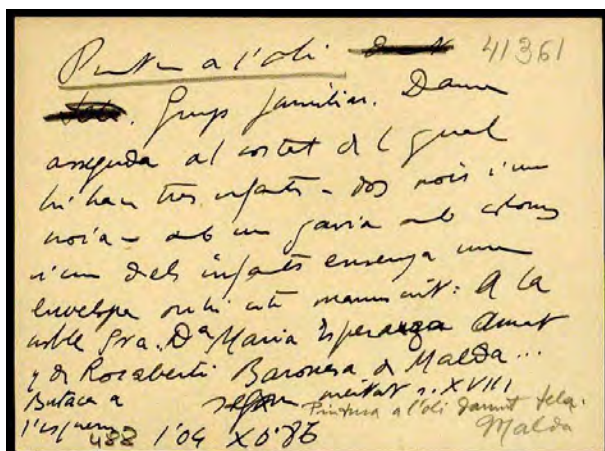 Pintura a l'oli 41361
Grup familiar. Dama
asseguda al costat del qual
hi han tres infants - dos nois i una
noia - amb una gavia amb coloms
i un dels infants ensenya una
envelopa on hi está manuscrit: A la
noble Sra. Dª Maria Esperanza Amat
y de Rocaberti Baronesa de Malda...
Butaca a segona meitat s. XVIII
Pintura a l'oli damunt tela.
l'esquerra 488 1'04 X 0'86 Malda